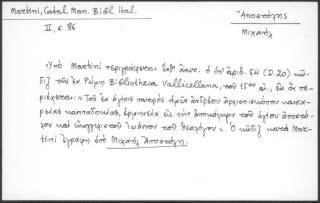 Martini, Catal. Man. Bibl. Ital.
II, σ. 86
Ἀποστόλης
Μιχαὴλ
Ὑπὸ Martini περιγράφεται ὁ ὑπ' ἀριθ. (D.20) κῶ-
διξ τῆς ἐν Ῥώμῃ Bibliotheca Vallicellana, τοῦ 15ου αἰ., ἐν ᾧ πε-
ριέχεται: "Τοῦ ἐν ἁγίοις πατρὸς ἡμῶν ἀνδρέου ἀρχιεπισκόπου καισα-
ρείας καππαδοκίας, ἑρμηνεία εἰς τὴν ἀποκάλυψιν τοῦ ἁγίου ἀποστό-
λου καὶ εὐαγγελιστοῦ Ἰωάννου τοῦ θεολόγου". Ὁ κῶδιξ κατὰ Mar-
tini ἐγράφη ὑπὸ Μιχαὴλ Ἀποστόλη.